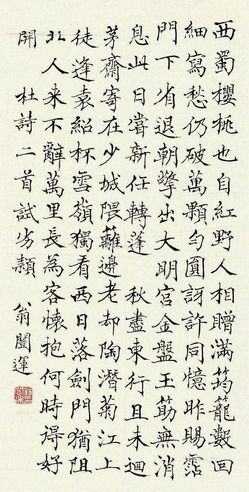 西蜀櫻桃也自紅野人相贈滿筠籠數回
細寫愁仍破萬顆勻圓訝許同憶昨賜霑
門下省退朝擎出大明宮金盤玉筯無消
息此日嘗新任轉蓬 秋盡東行且未迴
茅齋寄在少城隈籬邊老却陶潛菊江上
徒逢袁紹杯雪嶺獨看西日落劍門猶阻
北人來不辭萬里長為客懷抱何時得好
開 杜詩二首試劣穎 翁闓運